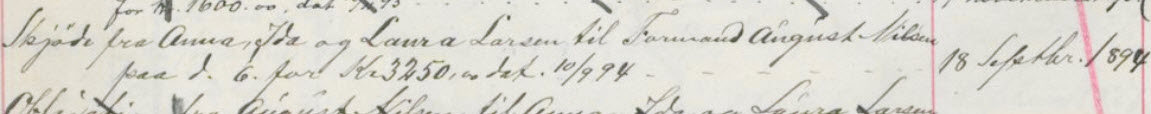 for Kr. 1600.00, dat
Skjøde fra Anna, Ida og Laura Larsen til Formand August Nilsen
paa d. E. for Kr 3250,00 dat. 10/9 94 - - - - - - - 18 Septbr. 1894
Obligation fra August Nilsen til Anna, Ida og Laura Larsen